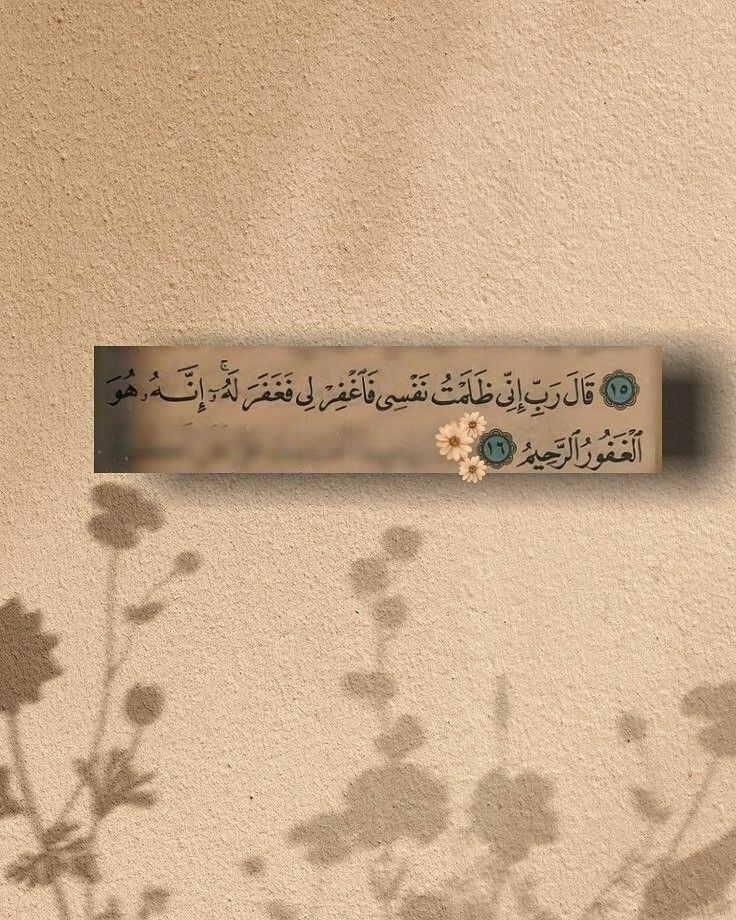 ١٥ قَالَ رَبِّ إِنِّي ظَلَمْتُ نَفْسِي فَٱغْفِرْ لِي فَغَفَرَ لَهُۥٓۚ إِنَّهُۥ هُوَ
ٱلْغَفُورُ ٱلرَّحِيمُ ١٦